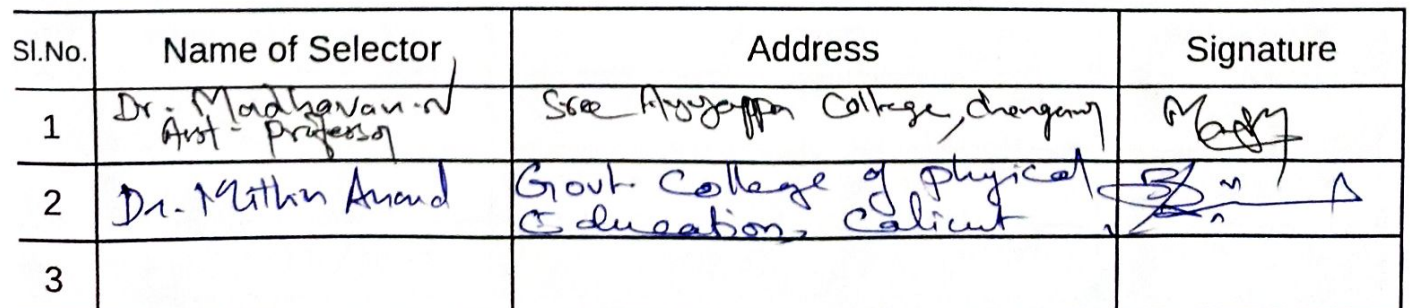 Sl.No. Name of Selector Address Signature
1 Dr. Madhavan.N Sree Ayyappa College,
Asst - Professor
2 Dr. Mithin Anand Govt. College of phyical
Education, Calicut
3